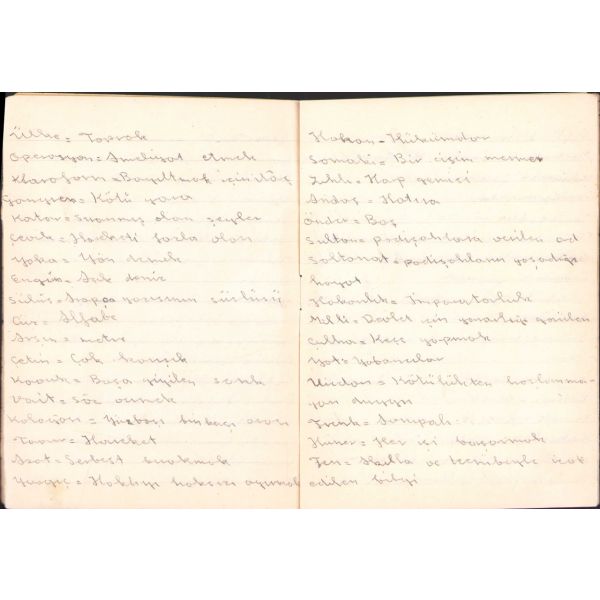 Ülke = Toprak
Operosyon = Ameliyat etmek
Kloroform = Bayıltmak için ilâç
Gangren = Kötü yara
Katar = olan şeyler
Çevik = Hareketi fazla olan
Yaka = Yön demek
Engin = Açık deniz
Sülüs = Arapça yazısının süslüsü
Cüz = Alfabe
Arşın = metre
Çetin = Çok
Kavuk = Başa giyilen sarık
Vait = Söz vermek
Kolağası = Yüzbaşı binbaşı arası
Tavır = Hareket
Azat = Serbest bırakmak
Yargıç = Haklıyı haksızı ayırmak
Hakan = Hükümdar
Somaki = Bir cişin mermer
Zekli = Harp gemici
Andaç = Hatıra
Önder = Baş
Sultan = padişahlara verilen ad
Saltanat = padişahların yaşadığı
hayat
Hakanlık = İmparatorluk
Milli = Devlet için görülen
Çulha = Keçe yapmak
Yat = Yabancılar
Vicdan = Kötülükten hoşlanma-
yan duygu
Frenk = Avrupalı
Hüner = Her işi başarmak
Fen = Akılla ve tecrübeyle icat
edilen bilgi